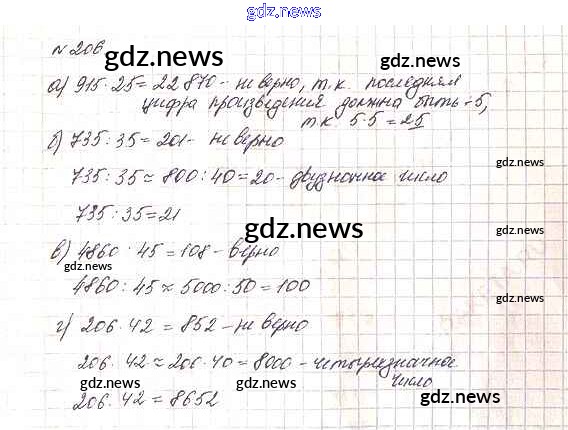 gdz.news
№ 206
gdz.news
gdz.news
а) 915 · 25 = 22 870 - не верно, т.к. последняя
цифра произведения должна быть - 5,
т.к. 5·5 = 25
б) 735 : 35 = 201 - не верно
gdz.news
735 : 35 ≈ 800 : 40 = 20 - двузначное число
gdz.news
735 : 35 = 21
gdz.news
в) 4860 : 45 = 108 - верно
gdz.news
4860 : 45 ≈ 5000 : 50 = 100
gdz.news
г) 206 · 42 = 852 - не верно
206 · 42 ≈ 200 · 40 = 8000 - четырехзначное
число
gdz.news
gdz.news
gdz.news
206 · 42 = 8652